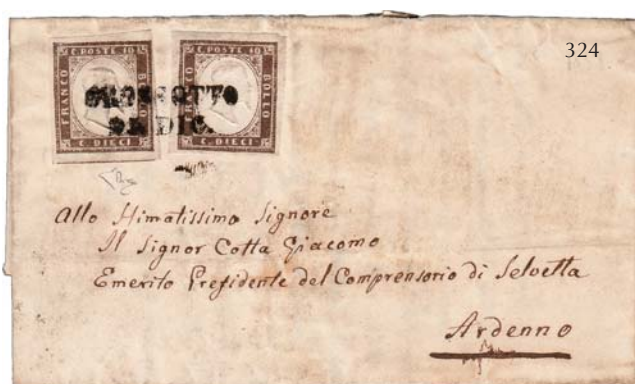 324
C. POSTE 10
FRANCO
BOLLO
C. DIECI
C. POSTE 10
FRANCO
BOLLO
C. DIECI
GROSOTTO
DIC.
Allo Stimatissimo Signore
Il Signor Cotta Giacomo
Emerito Presidente del Comprensorio di Selvetta
Ardenno